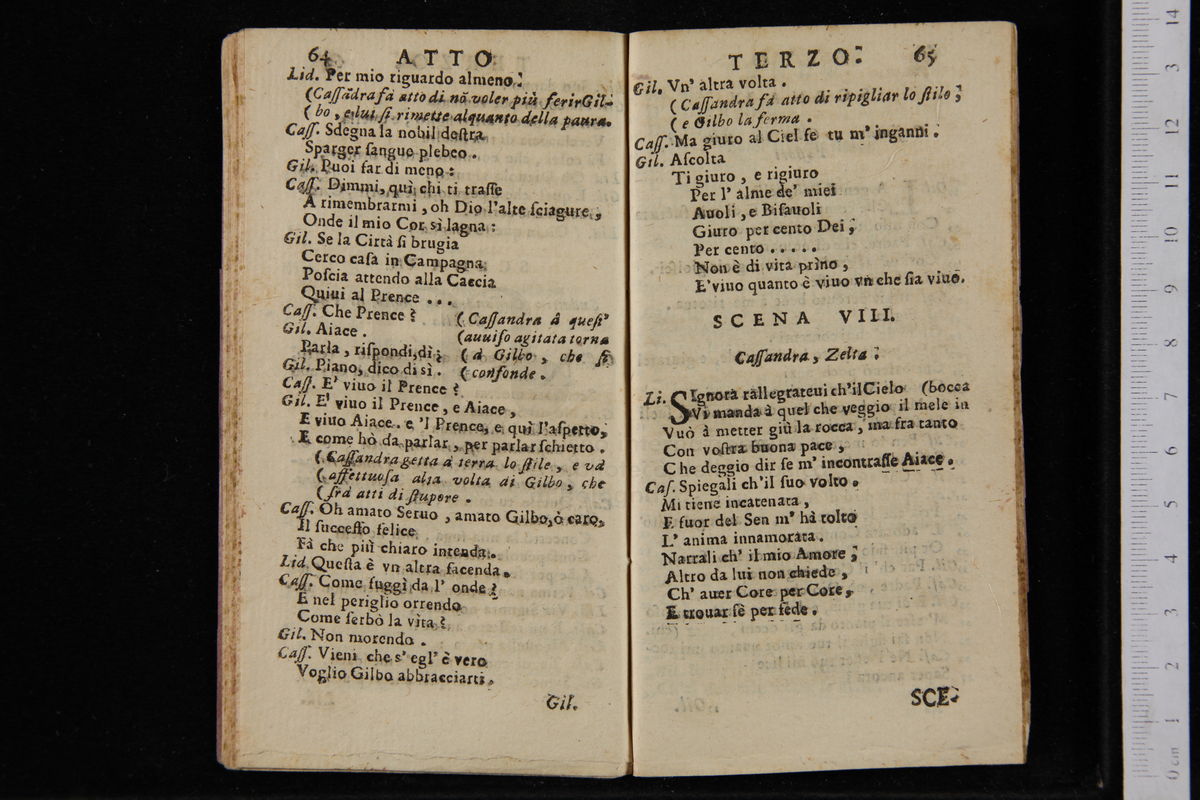 64 ATTO
Lid. Per mio riguardo almeno.
(Caſſādra fà atto di nō voler più ferir Gil-
(bo, e lui ſi rimette alquanto della paura.
Caſſ. Sdegna la nobil deſtra
Sparger ſangue plebeo.
Gil. Puoi far di meno:
Caſſ. Dimmi, quì chi ti traſſe
A rimembrarmi, oh Dio l'alte ſciagure,
Onde il mio Cor ſi lagna:
Gil. Se la Città ſi brugia
Cerco caſa in Campagna,
Poſcia attendo alla Caccia
Quiui al Prence ...
Caſſ. Che Prence? (Caſſandra â queſt'
Gil. Aiace. (auuiſo agitata torna
Parla, riſpondi, dì: (â Gilbo, che ſi
Gil. Piano, dico di sì. (confonde.
Caſſ. E' viuo il Prence?
Gil. E' viuo il Prence, e Aiace,
E viuo Aiace. e 'l Prence, e quì l'aſpetto,
E come hò da parlar, per parlar ſchietto.
(Caſſandra getta â terra lo ſtile, e và
(affettuoſa alla volta di Gilbo, che
(frà atti di ſtupore.
Caſſ. Oh amato Seruo, amato Gilbo, ò caro,
Il ſucceſſo felice
Fà che più chiaro intenda.
Lid Queſta è vn altra facenda.
Caſſ. Come fuggì da l' onde?
E nel periglio orrendo
Come ſerbò la vita?
Gil. Non morendo.
Caſſ. Vieni che s' egl' è vero
Voglio Gilbo abbracciarti.
Gil.
TERZO. 65
Gil. Vn' altra volta.
(Caſſandra fà atto di ripigliar lo ſtile,
(e Gilbo la ferma.
Caſſ. Ma giuro al Ciel ſe tu m' inganni.
Gil. Aſcolta
Ti giuro, e rigiuro
Per l' alme de' miei
Auoli, e Biſauoli
Giuro per cento Dei,
Per cento .....
Non è di vita prino,
E' viuo quanto è viuo vn che ſia viuo.
SCENA VIII.
Caſſandra, Zelta.
Li. SIgnora rallegrateui ch'il Cielo (bocca
Vi manda à quel che veggio il mele in
Vuò à metter giù la rocca, ma fra tanto
Con voſtra buona pace,
Che deggio dir ſe m' incontraſſe Aiace.
Caſ. Spiegali ch'il ſuo volto
Mi tiene incatenata,
E fuor del Sen m' hà tolto
L' anima innamorata.
Narrali ch' il mio Amore;
Altro da lui non chiede,
Ch' auer Core per Core,
E trouar fè per fede.
SCE-